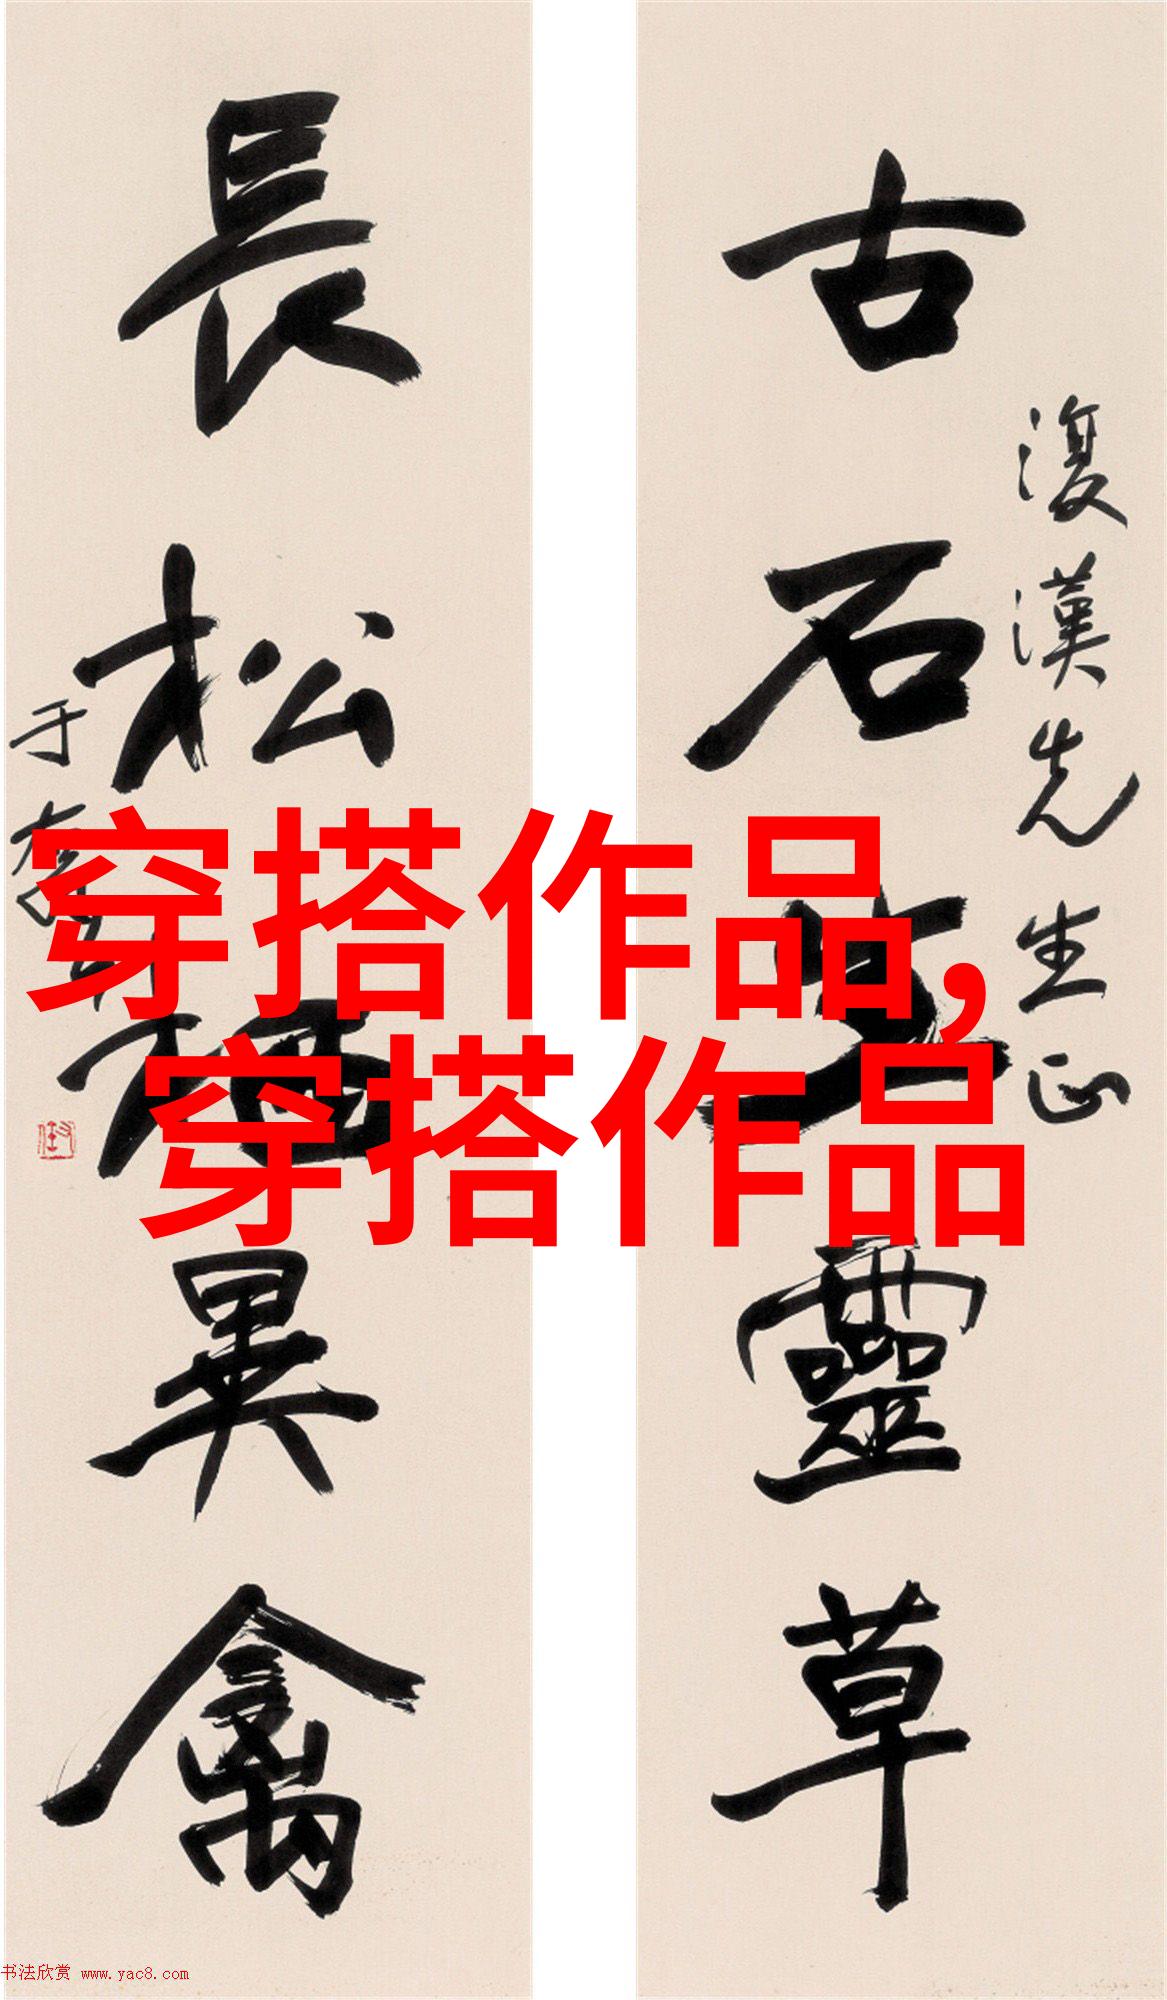 古石生靈草
復漢先生正
長松栖異禽
于右任
穿搭作品,
穿搭作品
书法欣赏 www.yac8.com